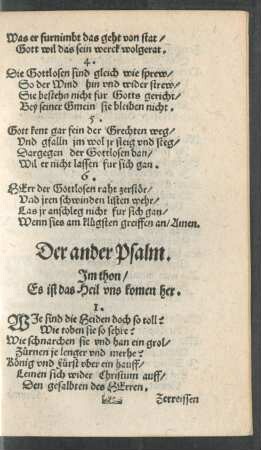 Was er fürnimbt das geht von stat/
Gott wil das sein werck wolgerat.
4.
Die Gottlosen sind gleich wie sprew/
So der Wind hin vnd wider strew/
Sie bestehn nicht für Gotts gericht/
Bey seiner Gmein sie bleiben nicht.
5.
Gott kent gar fein der Grechten weg/
Vnd gfalln jm wol je steig vnd steg/
Dargegen der Gottlosen ban/
Wil er nicht lassen für sich gan.
6.
HErr der Gottlosen raht zerstör/
Vnd jren schwinden listen wehr/
Las jr anschleg nicht für sich gan/
Wenn sies am klügsten greiffen an/Amen.
Der ander Psalm.
Im thon/
Es ist das Heil vns komen her.
1.
WIe sind die Heiden doch so toll?
Wie toben sie so sehre?
Wie schnarchen sie vnd han ein grol/
Zürnen je lenger vnd merhe?
König vnd Fürst vber ein hauff/
Leinen sich wider Christum auff/
Den gesalbten des HErren.
Zerreissen